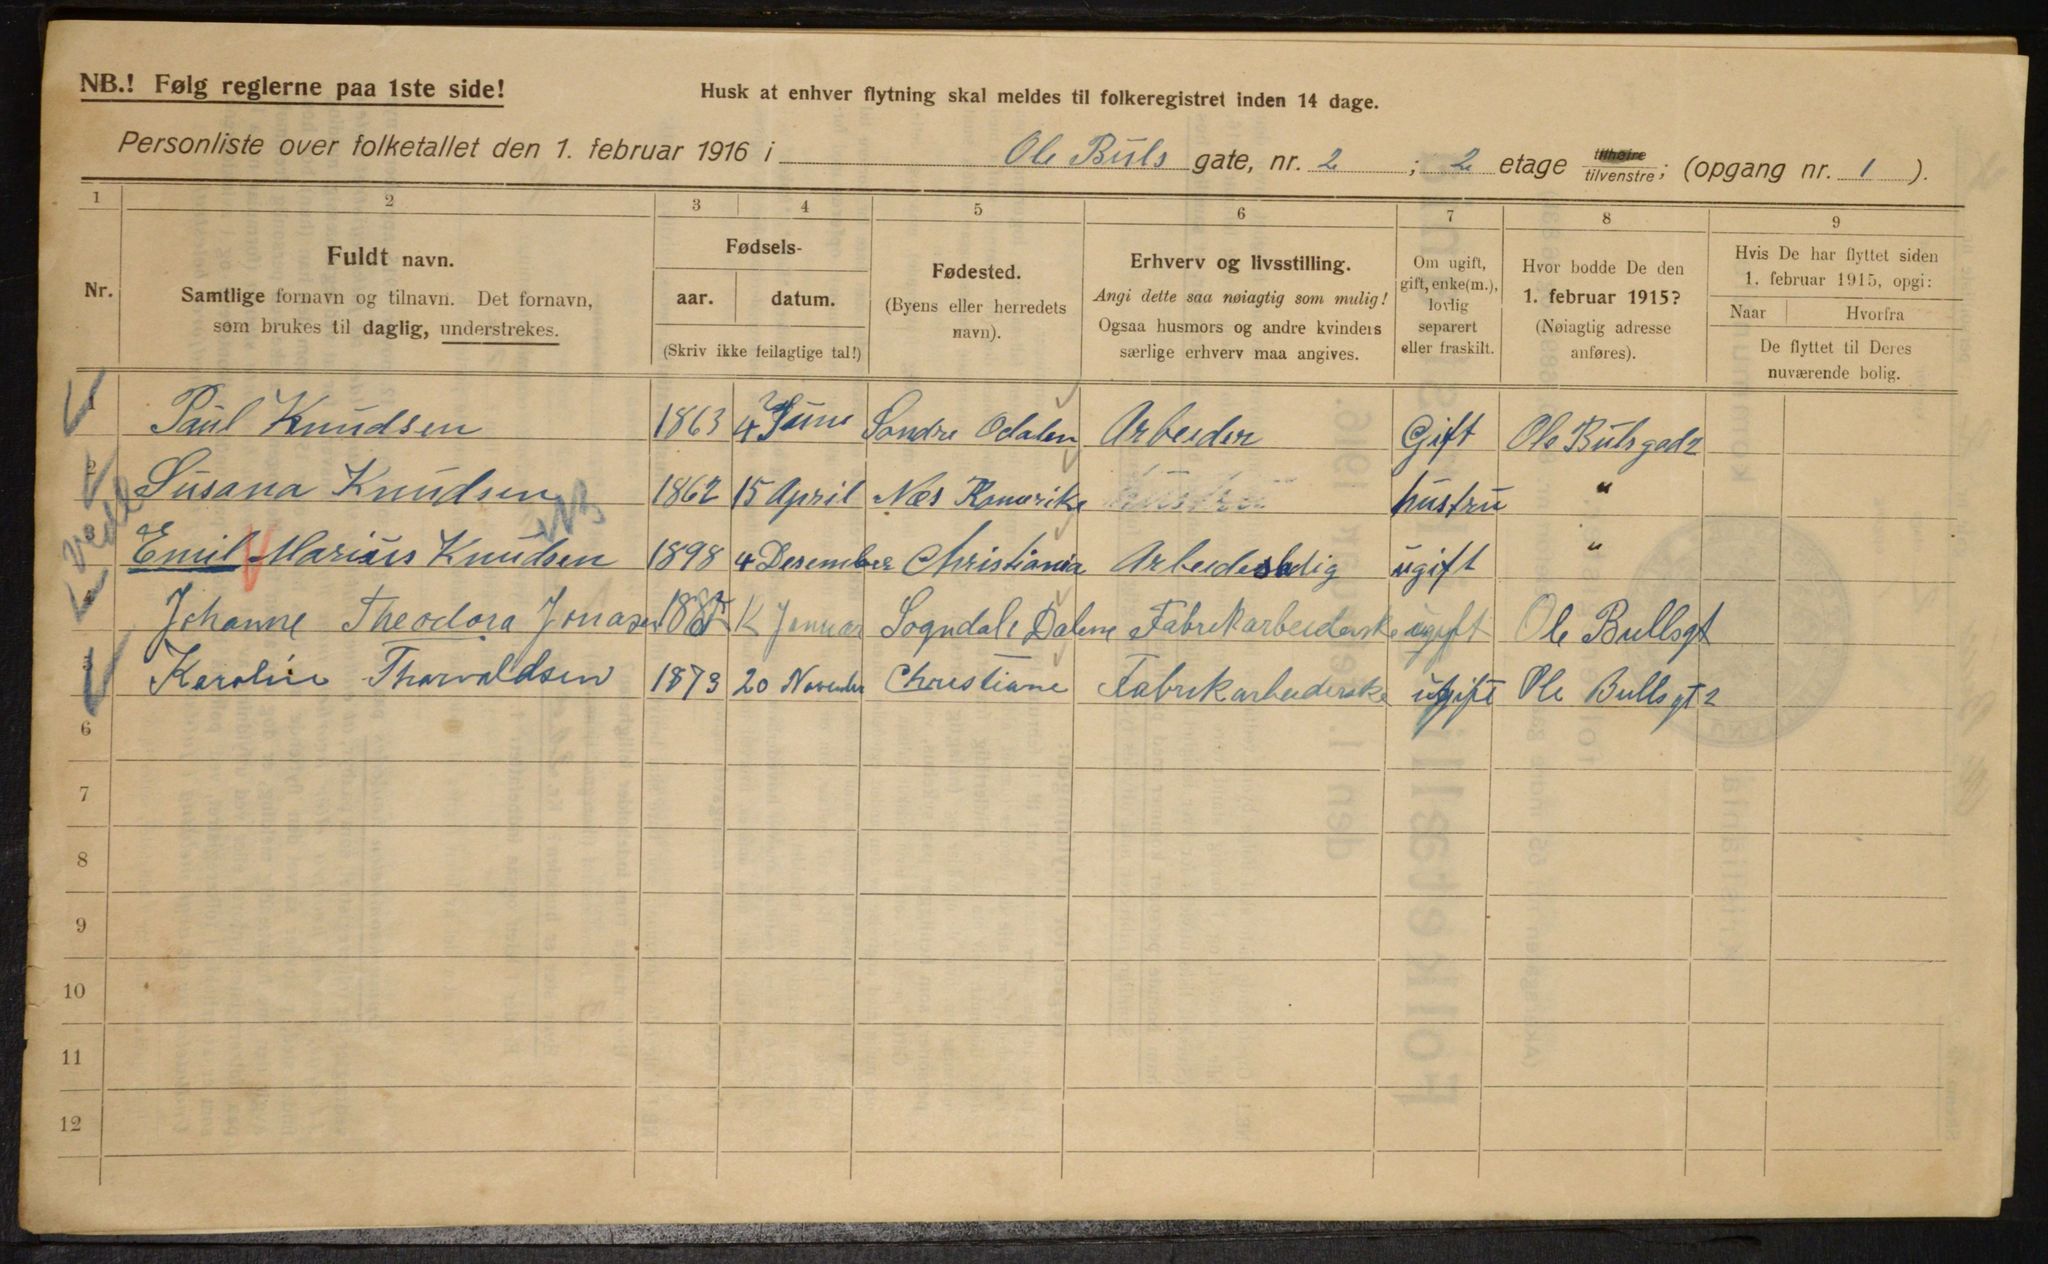 NB.! Følg reglerne paa 1ste side!
Husk at enhver flytning skal meldes til folkeregistret inden 14 dage.
Personliste over folketallet den 1. februar 1916 i Ole Buls gate, nr. 2 ; 2 etage tilhøire tilvenstre; (opgang nr. 1 ).
1 2 3 4 5 6 7 8 9
Nr.
Fuldt navn.
Samtlige fornavn og tilnavn. Det fornavn,
som brukes til daglig, understrekes.
Fødsels-
aar. datum.
(Skriv ikke feilagtige tal!)
Fødested.
(Byens eller herredets
navn).
Erhverv og livsstilling.
Angi dette saa nøiagtig som mulig!
Ogsaa husmors og andre kvinders
særlige erhverv maa angives.
Om ugift,
gift, enke(m.),
lovlig
separert
eller fraskilt.
Hvor bodde De den
1. februar 1915?
(Nøiagtig adresse
anføres).
Hvis De har flyttet siden
1. februar 1915, opgi:
Naar Hvorfra
De flyttet til Deres
nuværende bolig.
Paul Knudsen 1863 4 Juni Søndre Odalen Arbeider Gift Ole Bulsgad 2
2 Susana Knudsen 1862 15 April Næs Romerike hustru hustru "
3 Emil Marius Knudsen 1898 4 Desember Christiania Arbeidesledig ugift "
Johanne Theodora Jonasen Januar Sogndal i Dalene Fabrikarbeiderske ugift Ole Bullsgt
5 Karoline Thorvaldsen 1873 20 November Christiane Fabrikarbeiderske ugift Ole Bullsgt 2
6
7
8
9
10
11
12